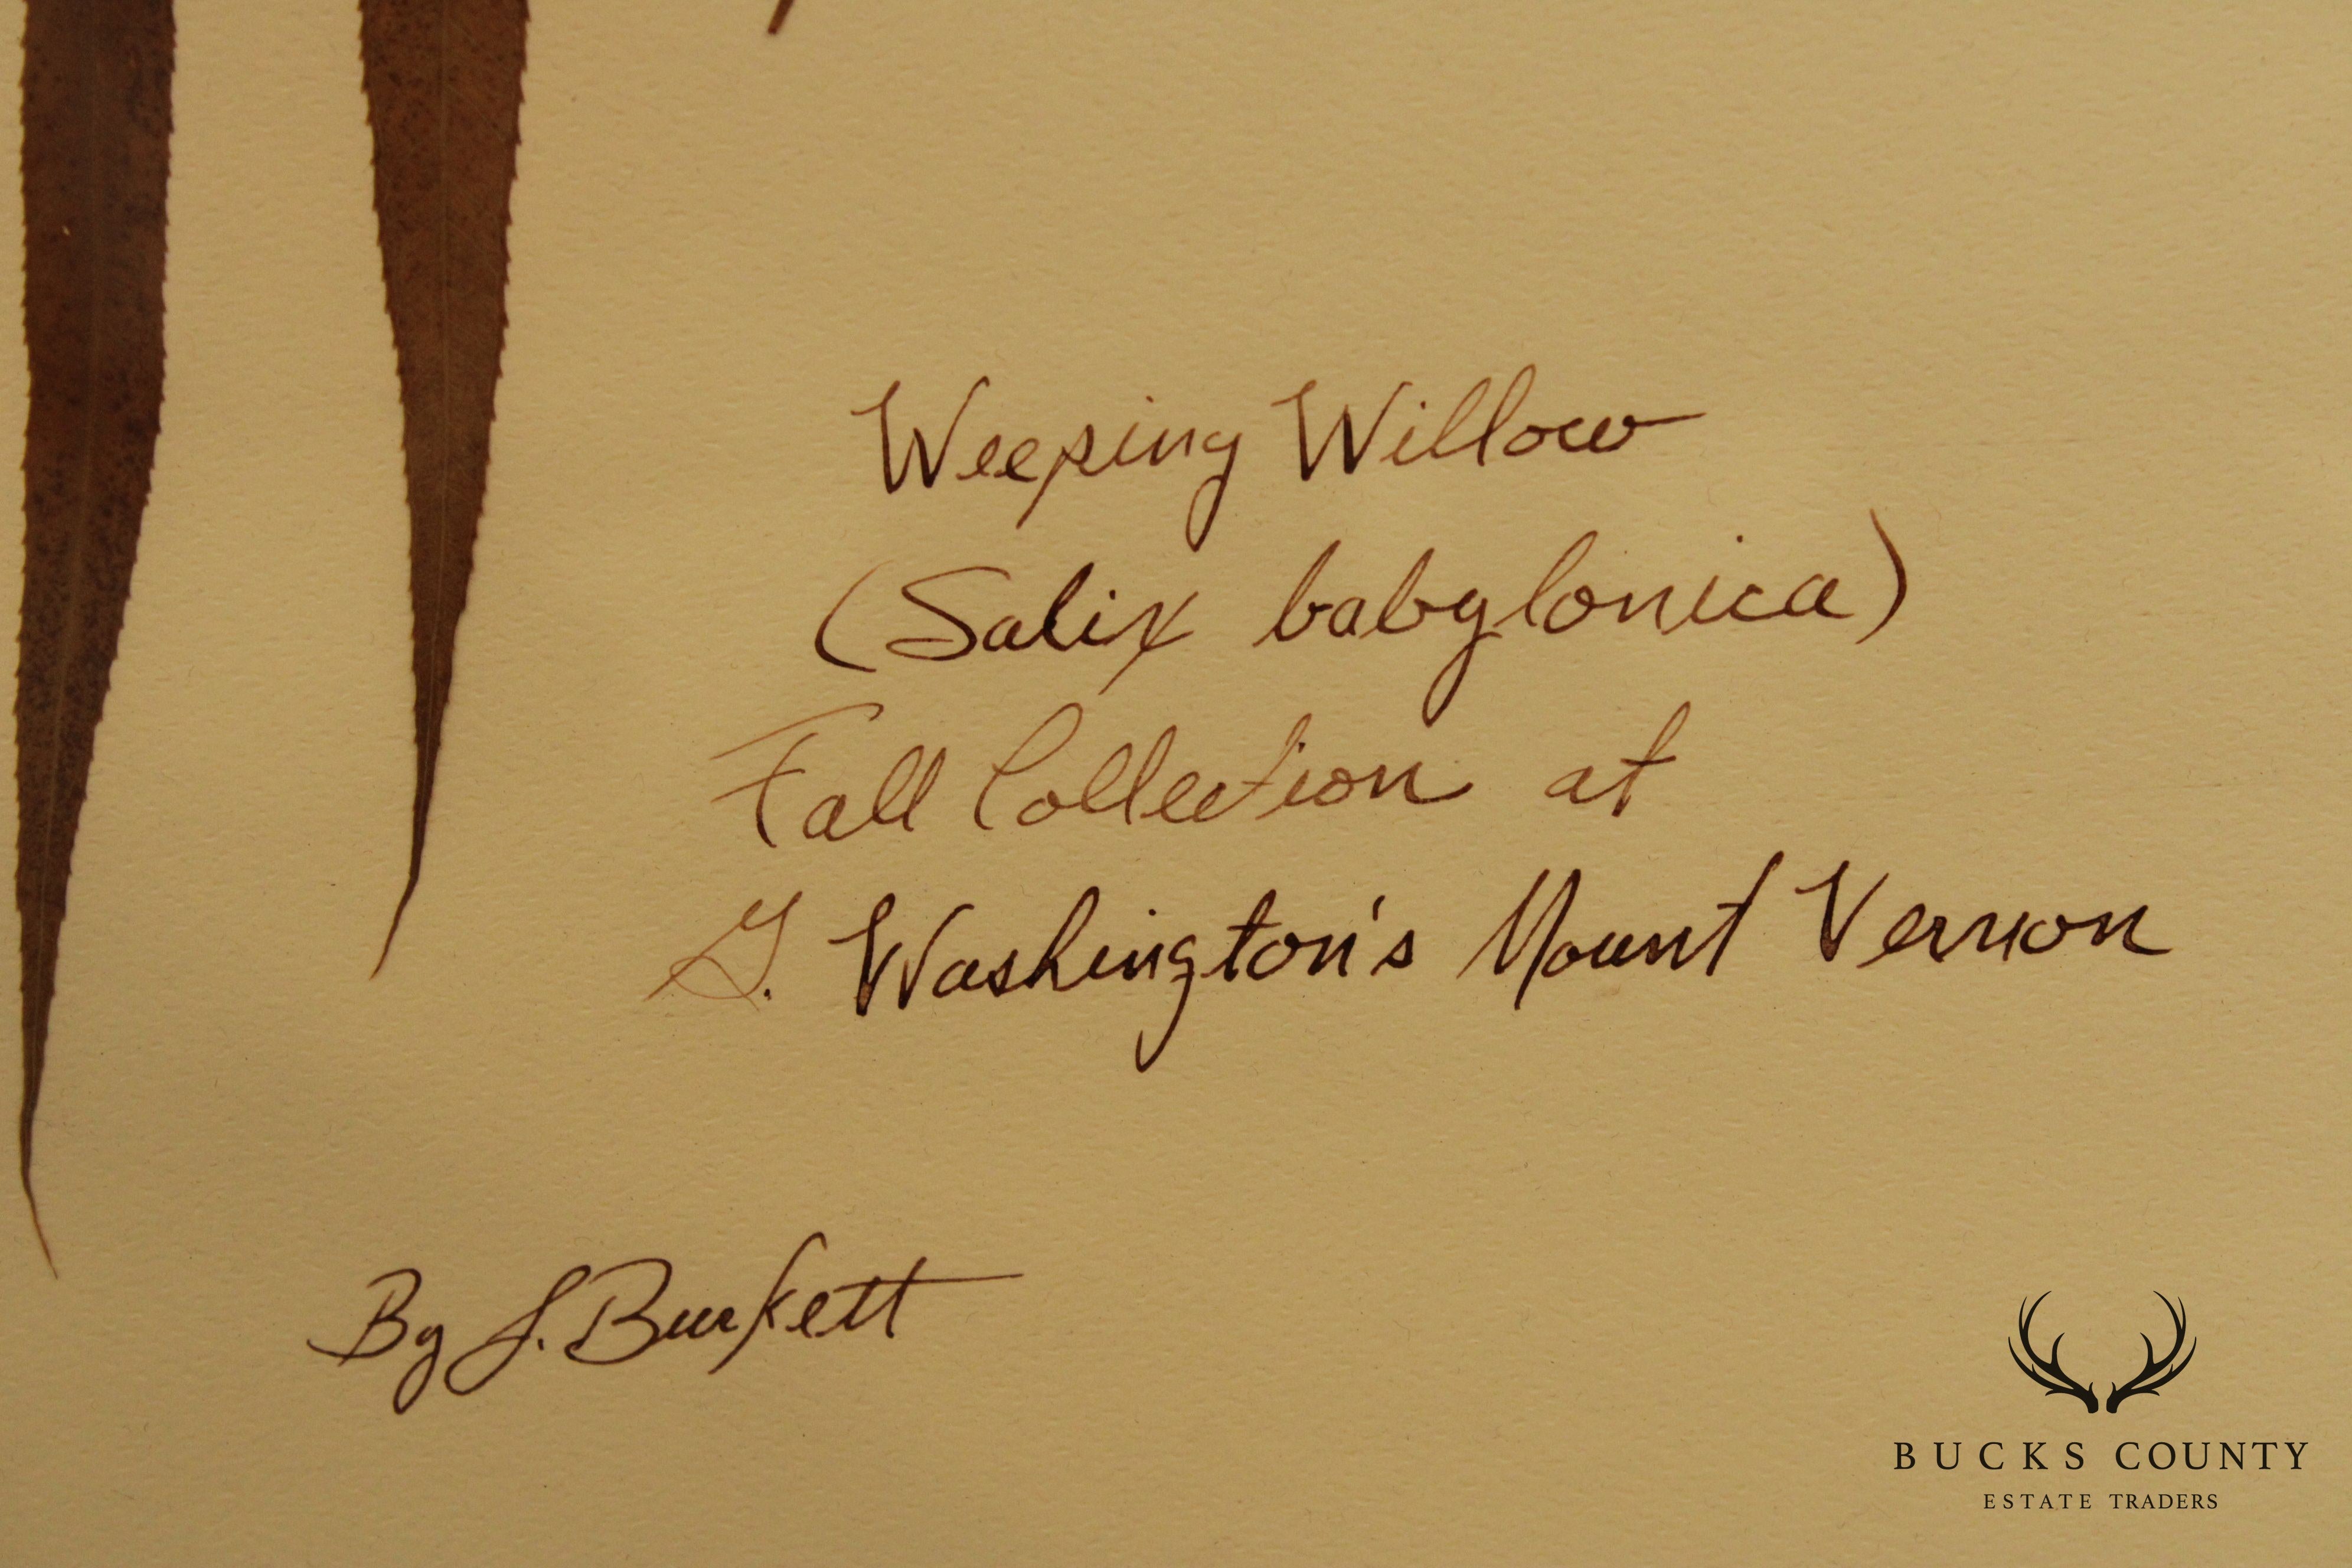 Weeping Willow
(Salix babylonica)
Fall Collection at
G. Washington's Mount Vernon
By J. Burkett
BUCKS COUNTY
ESTATE TRADERS